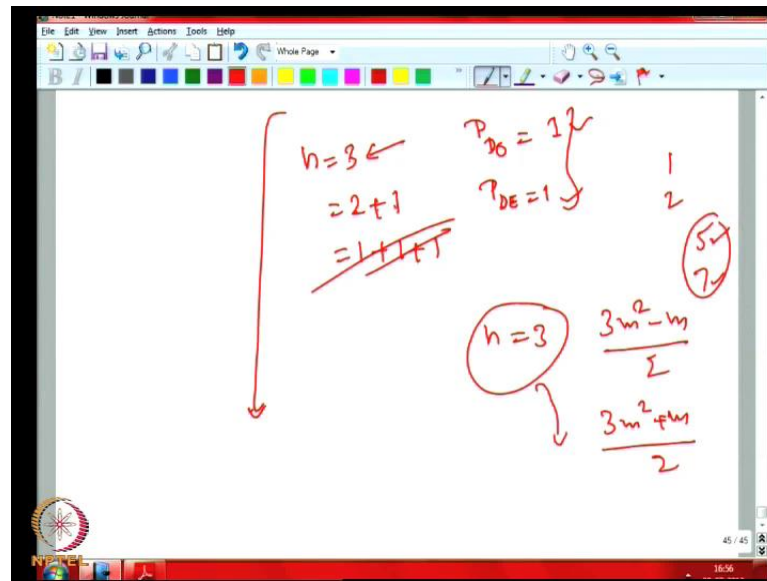 File Edit View Insert Actions Tools Help
Whole Page
B I
n=3 ←
=2+1
=1+1+1
P_DO = 1
P_DE = 1
1
2
5
7
n=3
3m²-m
2
3m²+m
2
45 / 45
NPTEL
16:56